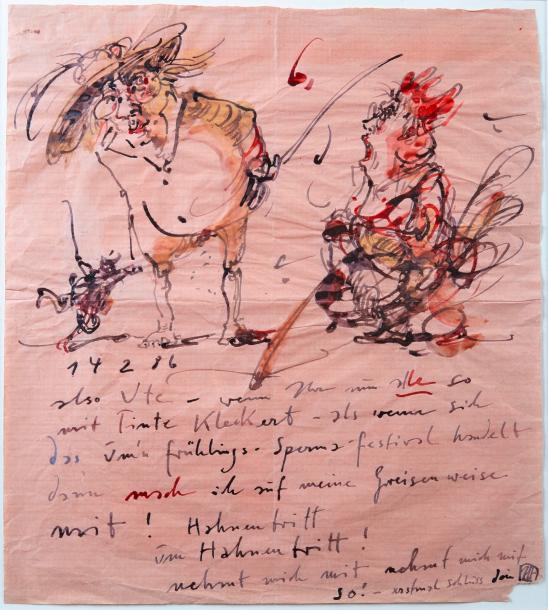 14 2 86
also Ute – wenn Ihr nun alle so
mit Tinte Kleckert – als wenn sich
das üm'n frühlings-Sperma-festival handelt
dann mach ich auf meine Greisenweise
mit! Hahnentritt
üm Hahnentritt!
nehmt mich mit nehmt mich mit
so! – erstmal schluss dein